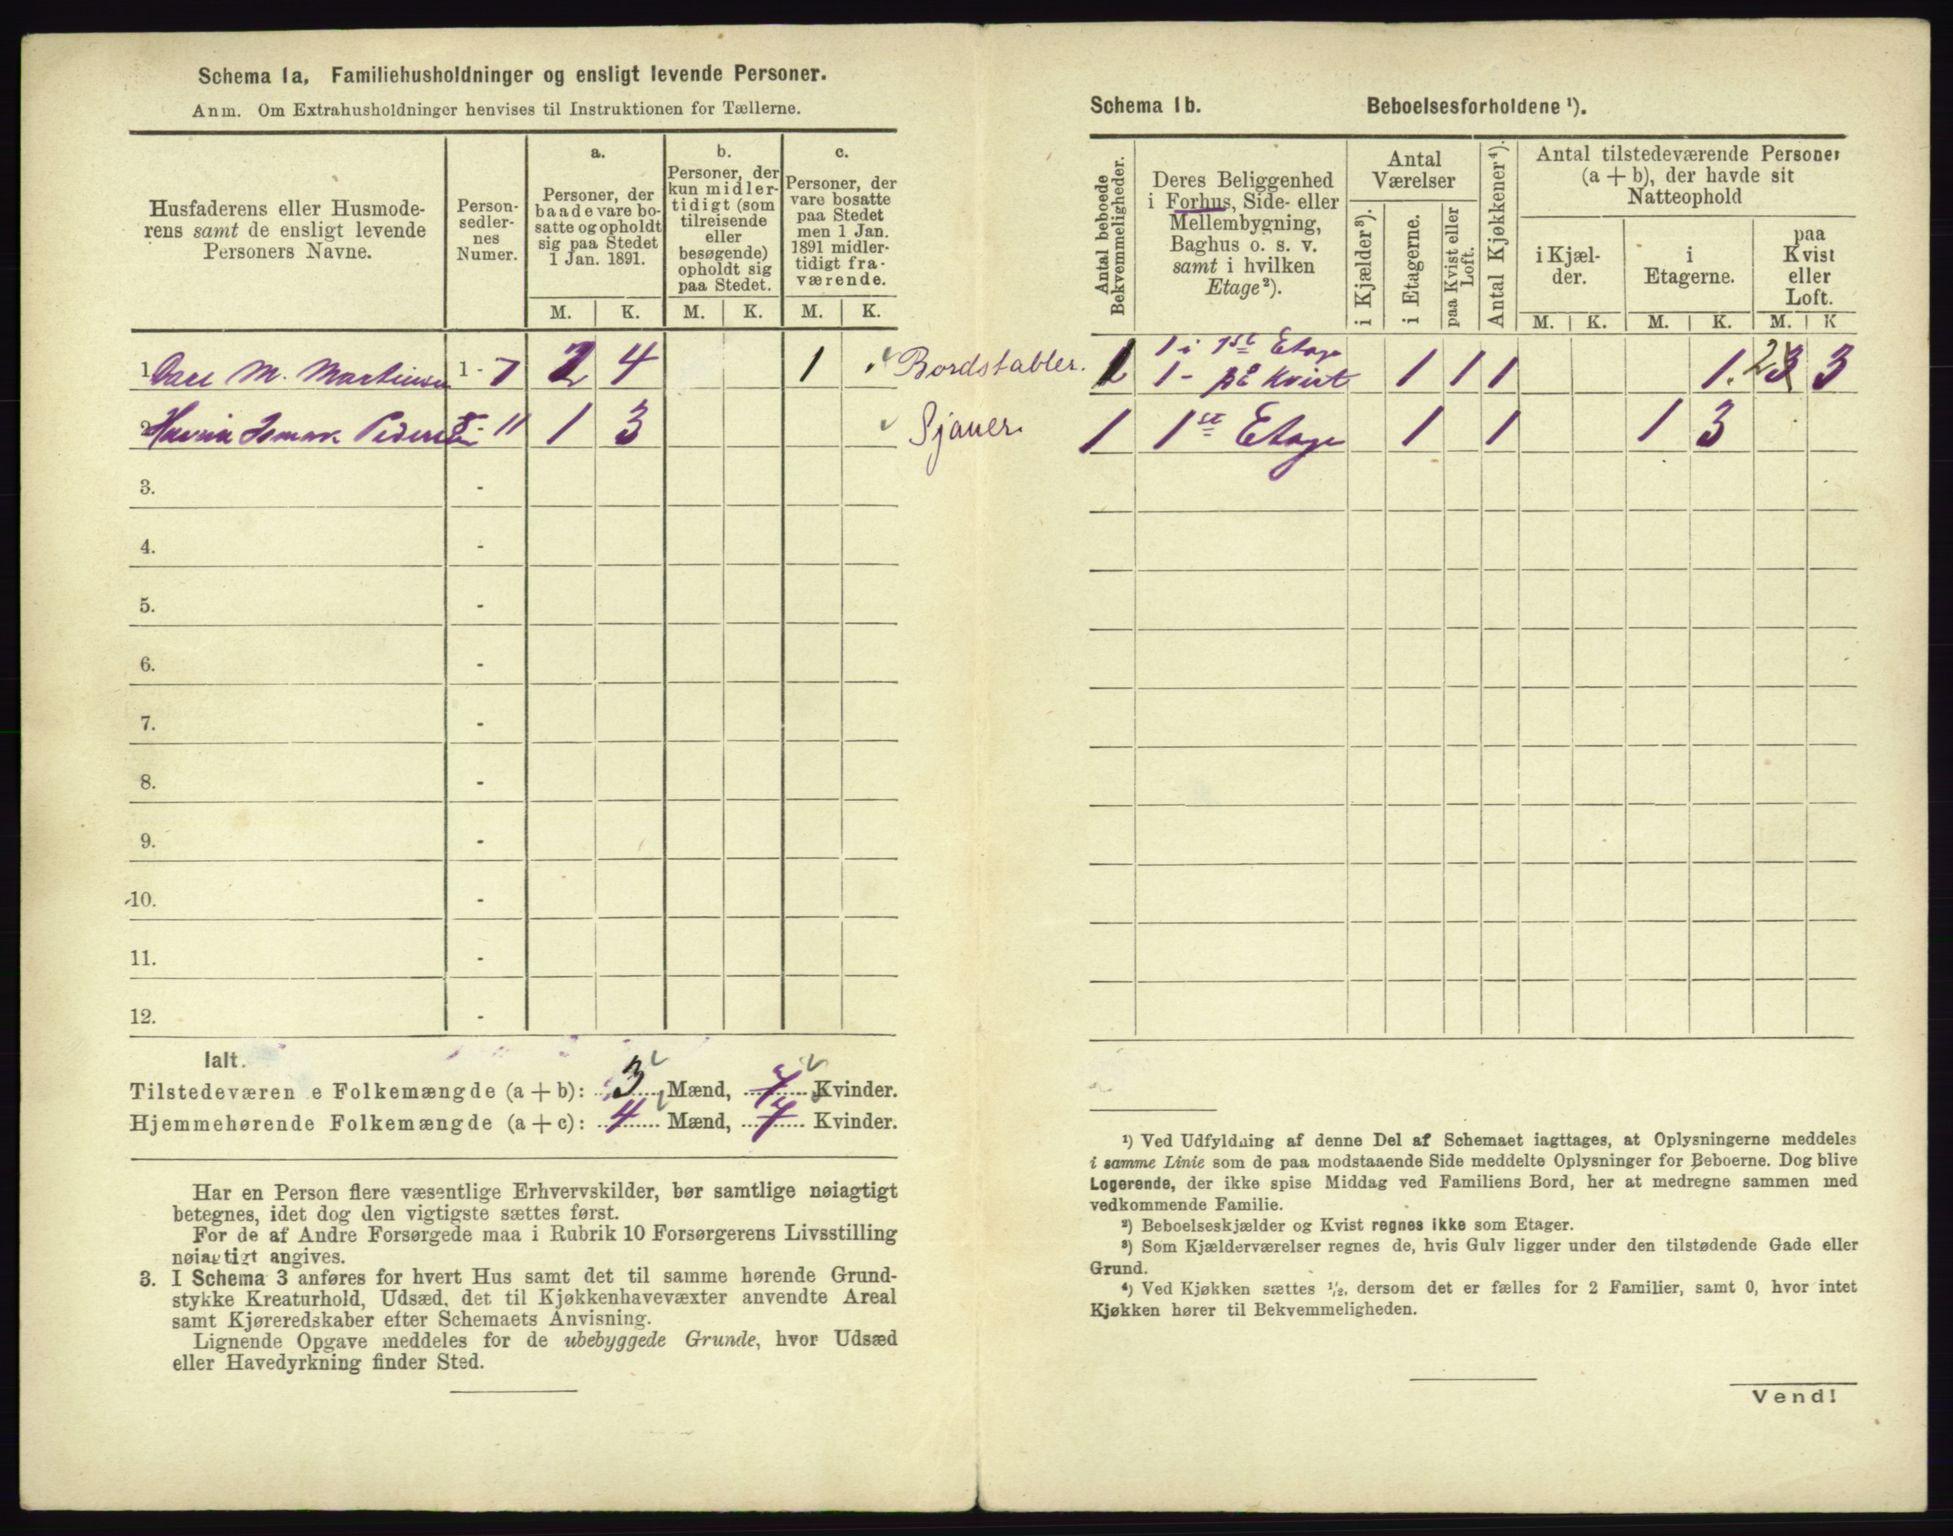 Schema 1a. Familiehusholdninger og ensligt levende Personer.
Anm. Om Extrahusholdninger henvises til Instruktionen for Tællerne.
Husfaderens eller Husmode-
rens samt de ensligt levende
Personers Navne.
Person-
sedler-
nes
Numer.
a.
Personer, der
baade vare bo-
satte og opholdt
sig paa Stedet
1 Jan. 1891.
b.
Personer, der
kun midler-
tidigt (som
tilreisende
eller
besøgende)
opholdt sig
paa Stedet.
c.
Personer, der
vare bosatte
paa Stedet
men 1 Jan.
1891 midler-
tidigt fra-
værende.
M. K. M. K. M. K.
1. Carl M. Martinsen 1 - 7 2 4 1 Bordstabler.
2. Pedersen - 11 1 3 Sjauer
3. -
4. -
5. -
6. -
7. -
8. -
9. -
10. -
11. -
12. -
Ialt.
Tilstedeværen e Folkemængde (a + b): 3 Mænd, 7 Kvinder.
Hjemmehørende Folkemængde (a + c): 4 Mænd, 7 Kvinder.
Har en Person flere væsentlige Erhvervskilder, bør samtlige nøiagtigt
betegnes, idet dog den vigtigste sættes først.
For de af Andre Forsørgede maa i Rubrik 10 Forsørgerens Livsstilling
nøiagtigt angives.
3. I Schema 3 anføres for hvert Hus samt det til samme hørende Grund-
stykke Kreaturhold, Udsæd, det til Kjøkkenhavevæxter anvendte Areal
samt Kjøreredskaber efter Schemaets Anvisning.
Lignende Opgave meddeles for de ubebyggede Grunde, hvor Udsæd
eller Havedyrkning finder Sted.
Schema 1b. Beboelsesforholdene ¹).
Antal beboede
Bekvemmeligheder.
Deres Beliggenhed
i Forhus, Side- eller
Mellembygning,
Baghus o. s. v.
samt i hvilken
Etage²).
Antal
Værelser
i Kjælder³).
i Etagerne.
paa Kvist eller
Loft.
Antal Kjøkkener⁴).
Antal tilstedeværende Personer
(a + b), der havde sit
Natteophold
i Kjæl-
der.
i
Etagerne.
paa
Kvist
eller
Loft.
M. K. M. K. M. K
1 i 1st Etage
1 1 - på Kvist 1 1 1 1. 2 3 3
1 1st Etage 1 1 1 3
¹) Ved Udfyldning af denne Del af Schemaet iagttages, at Oplysningerne meddeles
i samme Linie som de paa modstaaende Side meddelte Oplysninger for Beboerne. Dog blive
Logerende, der ikke spise Middag ved Familiens Bord, her at medregne sammen med
vedkommende Familie.
²) Beboelseskjælder og Kvist regnes ikke som Etager.
³) Som Kjælderværelser regnes de, hvis Gulv ligger under den tilstødende Gade eller
Grund.
⁴) Ved Kjøkken sættes ½, dersom det er fælles for 2 Familier, samt 0, hvor intet
Kjøkken hører til Bekvemmeligheden.
Vend!